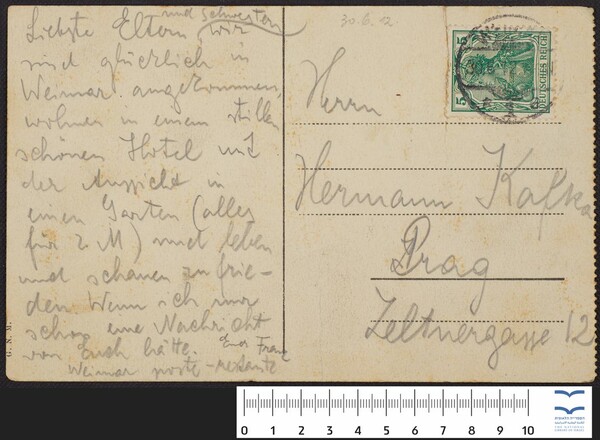 Liebste Eltern und Schwestern wir
sind glücklich in
Weimar angekommen,
wohnen in einem stillen
schönen Hotel mit
der Aussicht in
einen Garten (alles
für 2 M) und leben
und schauen zufrie-
den Wenn ich nur
schon eine Nachricht
von Euch hätte.
Euer Franz
Weimar poste-restante
G. N. M.
30.6.12
5
5
DEUTSCHES REICH
Herrn
Hermann Kafka
Prag
Zeltnergasse 12
0 1 2 3 4 5 6 7 8 9 10